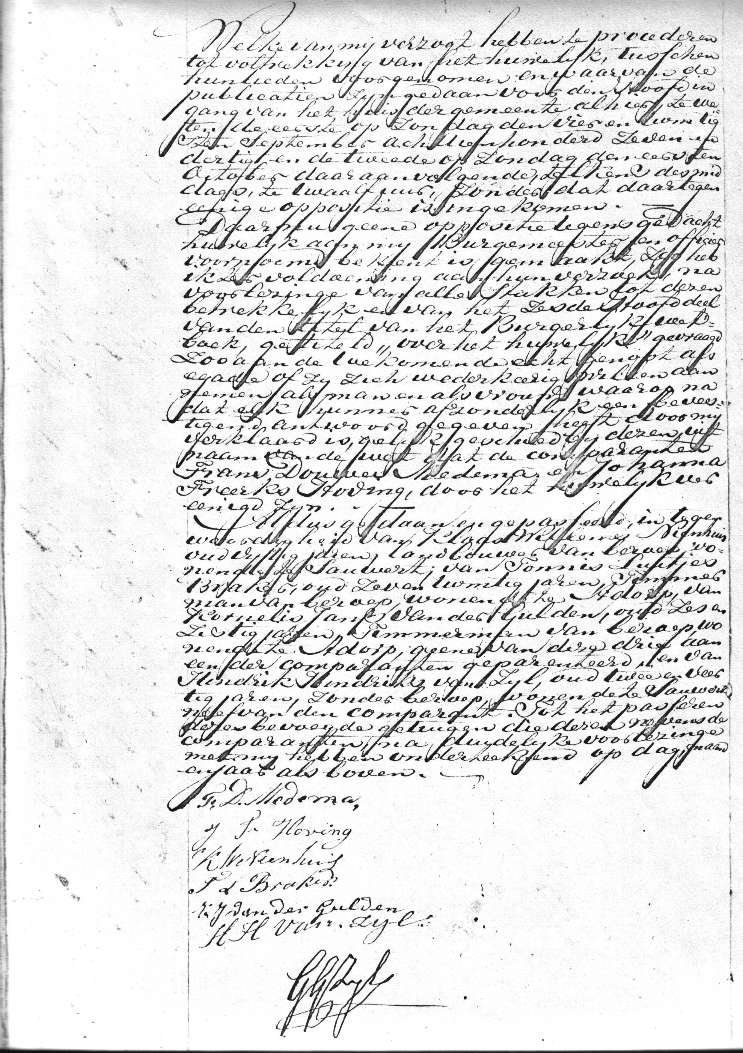 Welke van mij verzogt hebben te procederen
tot voltrekking van het huwelijk, tusschen
hunlieden voorgenomen en waarvan de
publicatien zijn gedaan voor den Hoofdin
gang van het Huis der gemeente alhier, te we
ten de eerste op Zondag den vier en twintig
sten September achttienhonderd zeven en
dertig en de tweede op Zondag den eersten
October daaraanvolgende, telkens des mid
dags, te twaalf uur, zonder dat daartegen
eenige oppositie is ingekomen.
Daar nu geene oppositie tegens gedacht
huwelijk aan mij Burgemeester en officier
voornoemd bekent is gemaakt, zijs heb
ik ter voldoening aan hun verzoek, na
voorlezinge van alle stukken tot deren
betrekkelijk en van het zesde Hoofddeel
van den titel van het Burgerlijk wet-
boek, getiteld "over het huwelijk" gevraagd
Zoo aan de toekomende echtgenoot als
egade of zij zich wederkeerig willen aan
nemen als man en als vrouw, waarop na
dat elk hunner afzonderlijk een beves-
tigend antwoord gegeven heeft, door mij
verklaard is, gelijk geschied bij deren, uit
naam van de wet, dat de comparanten
Frans Douwes Medema en Johanna
Freerks Hoving, door het huwelijk ver
eenigd zijn.
Aldus gedaan en gepasseerd, in tegen
woordigheid van Klaas Willems Nienhuis
oud vijftig jaren, landbouwer van beroep, wo-
nende te Sauwert, van Tonnis Luitjes
Braker, oud zeven twintig jaren, Timmer
man van beroep, wonende te Adorp, van
Kornelis Jans van der Gulden, oud zes en
Zestig jaren, Timmerman van beroep wo
nende te Adorp, geene van deze drie aan
een der comparanten geparenteerd, en van
Hindrik Hindriks van Zijl, oud twee en veer
tig jaren, zonder beroep, wonende te Sauwert
neef van den comparant. Tot het passeren
dezer bevoegde getuigen die deren nevens de
comparanten, na duidelijke voorlezinge
met mij hebben onderteekend op dag, maand
en jaar als boven.
F. D. Medema,
J F Hoving
K W Nienhuis
T L Braker
K J van der Gulden
H H Van Zijl